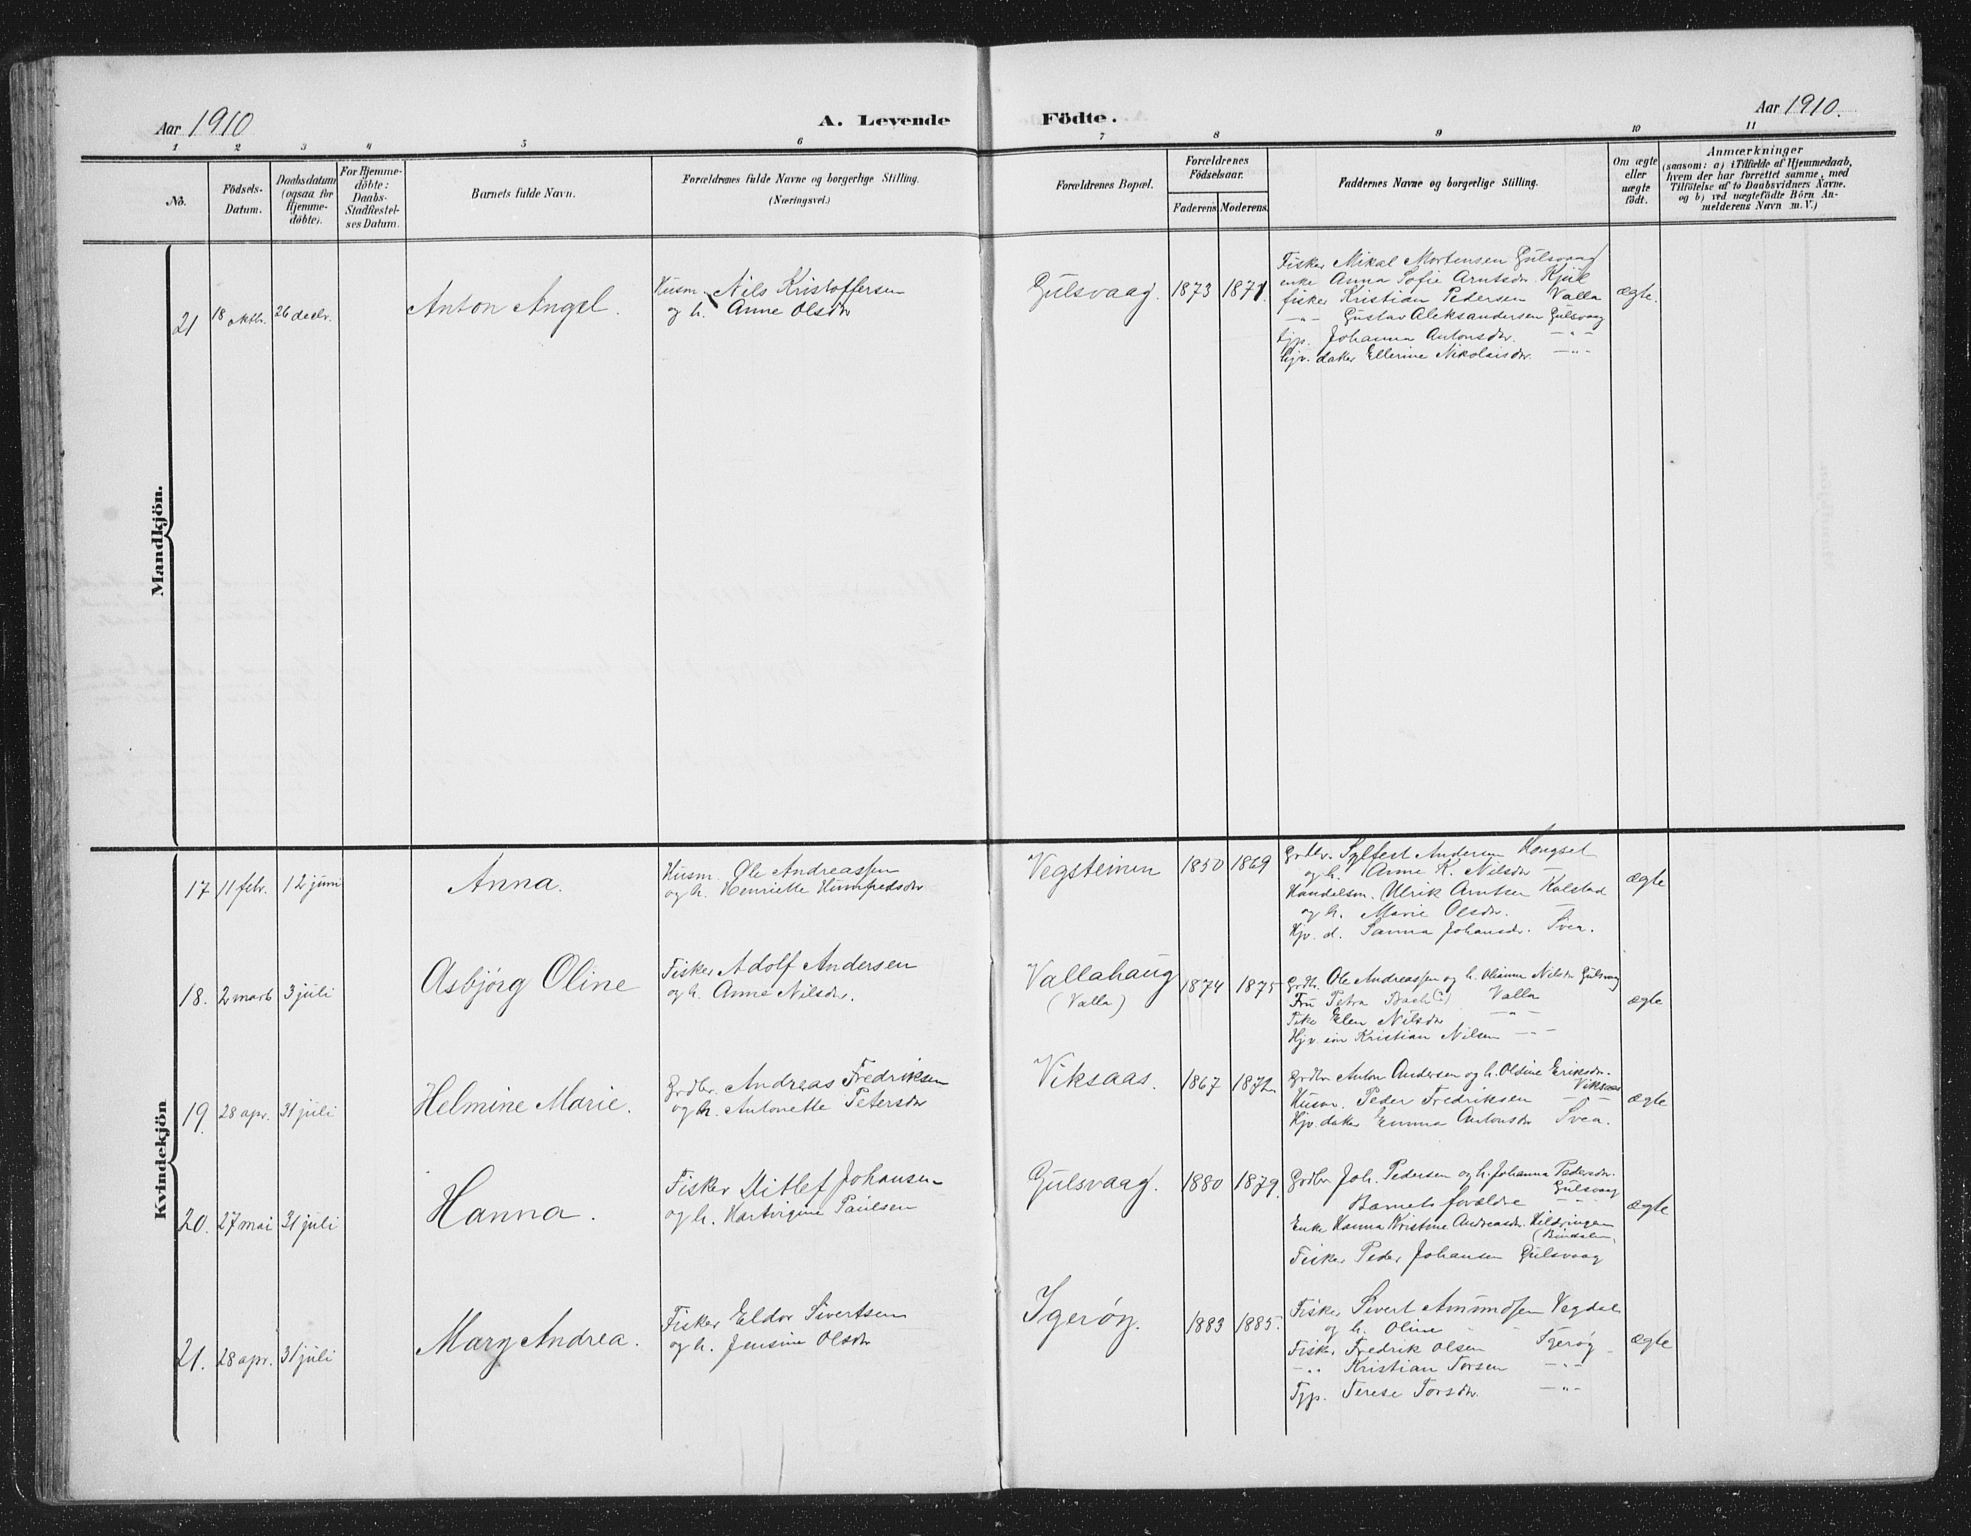 Aar 1910
A. Levende Födte.
Aar 1910.
1 2 3 4 5 6 7 8 9 10 11
No.
Födsels-
Datum.
Daabsdatum
(ogsaa for
Hjemme-
döbte).
For Hjemme-
döbte:
Daabs-
Stadfæstel-
ses Datum.
Barnets fulde Navn.
Forældrenes fulde Navne og borgerlige Stilling.
(Næringsvei.)
Forældrenes Bopæl.
Forældrenes
Födselsaar.
Faderens Moderens.
Faddernes Navne og borgerlige Stilling.
Om ægte
eller
uægte
födt.
Anmærkninger
(saasom: a) i Tilfælde af Hjemmedaab,
hvem der har forrettet samme, med
Tilföielse af to Daabsvidners Navne.
og b) ved uægtefödte Börn An-
melderens Navn m. V.)
Mandkjön.
21 18 oktbr. 26 decbr. Anton Angel.
Husm. Nils Kristoffersen
og h. Anne Olsdr
Gulsvaag. 1873 1871.
Fisker Mikal Mortensen Gulsvaag
enke Anna Sofie Arntsdr. Kjul
fisker Kristian Pedersen Valla
—"— Gustav Aleksandersen Gulsvaag
typ. Johanna Antonsdr. —"—
Hjv. daker Ellerine Nikolaisdr. —"—
ægte.
Kvindekjön
17 11 febr. 12 juni Anna.
Husm. Ole Andreassen
og h. Henriette Humfredsdr
Vegsteinen 1850 1869
Grdbr. Sylfest Andersen Kongset
og h. Anne K. Nilsdr —
Handelsm. Ulrik Arntsen Kolstad
og h. Marie Olsdr.
Hjv. d. Sanna Johansdr. Svea.
ægte
18. 2 marts 3 juli Asbjørg Oline
Fisker Adolf Andersen
og h. Anne Nilsdr.
Vallahaug
(Valla)
1874 1875
Grdb. Ole Andreassen og h. Olianna Nilsdr Gulsvaag
Fru Petra Bach (:) Valla
Pike Elen Nilsdr —"—
Hjv. søn Kristian Nilsen —"—
ægte
19. 28 apr. 31 juli Helmine Marie.
Grdbr. Andreas Fredriksen
og h. Antonette Petersdr
Viksaas. 1867 1872
Grdbr Anton Andersen og h. Oldine Eriksdr.
Viksaas
Husm. Peder Fredriksen —"—
Hjv. daker Emma Antonsdr Svea.
ægte
20. 27 mai 31 juli Hanna.
Fisker Ditlef Johansen
og h. Hartvigine Paulsen
Gulsvaag. 1880 1879.
Grdbr Joh. Pedersen og h. Johanna Pedersdr.
Gulsvaag
Barnets forældre —"—
Enke Hanna Kristine Andreasdr. Hildringen
(Bindalen)
Fisker Peder Johansen Gulsvaag
ægte
21. 28 apr. 31 juli Mary Andrea.
Fisker Eldor Sivertsen
og h. Jensine Olsdr
Igerøy. 1883 1885.
Fisker Sivert Amundsen Vegdal
og h. Oline —
Fisker Fredrik Olsen Igerøy
—"— Kristian Torsen —"—
Typ. Terese Torsdr. —"—
ægte